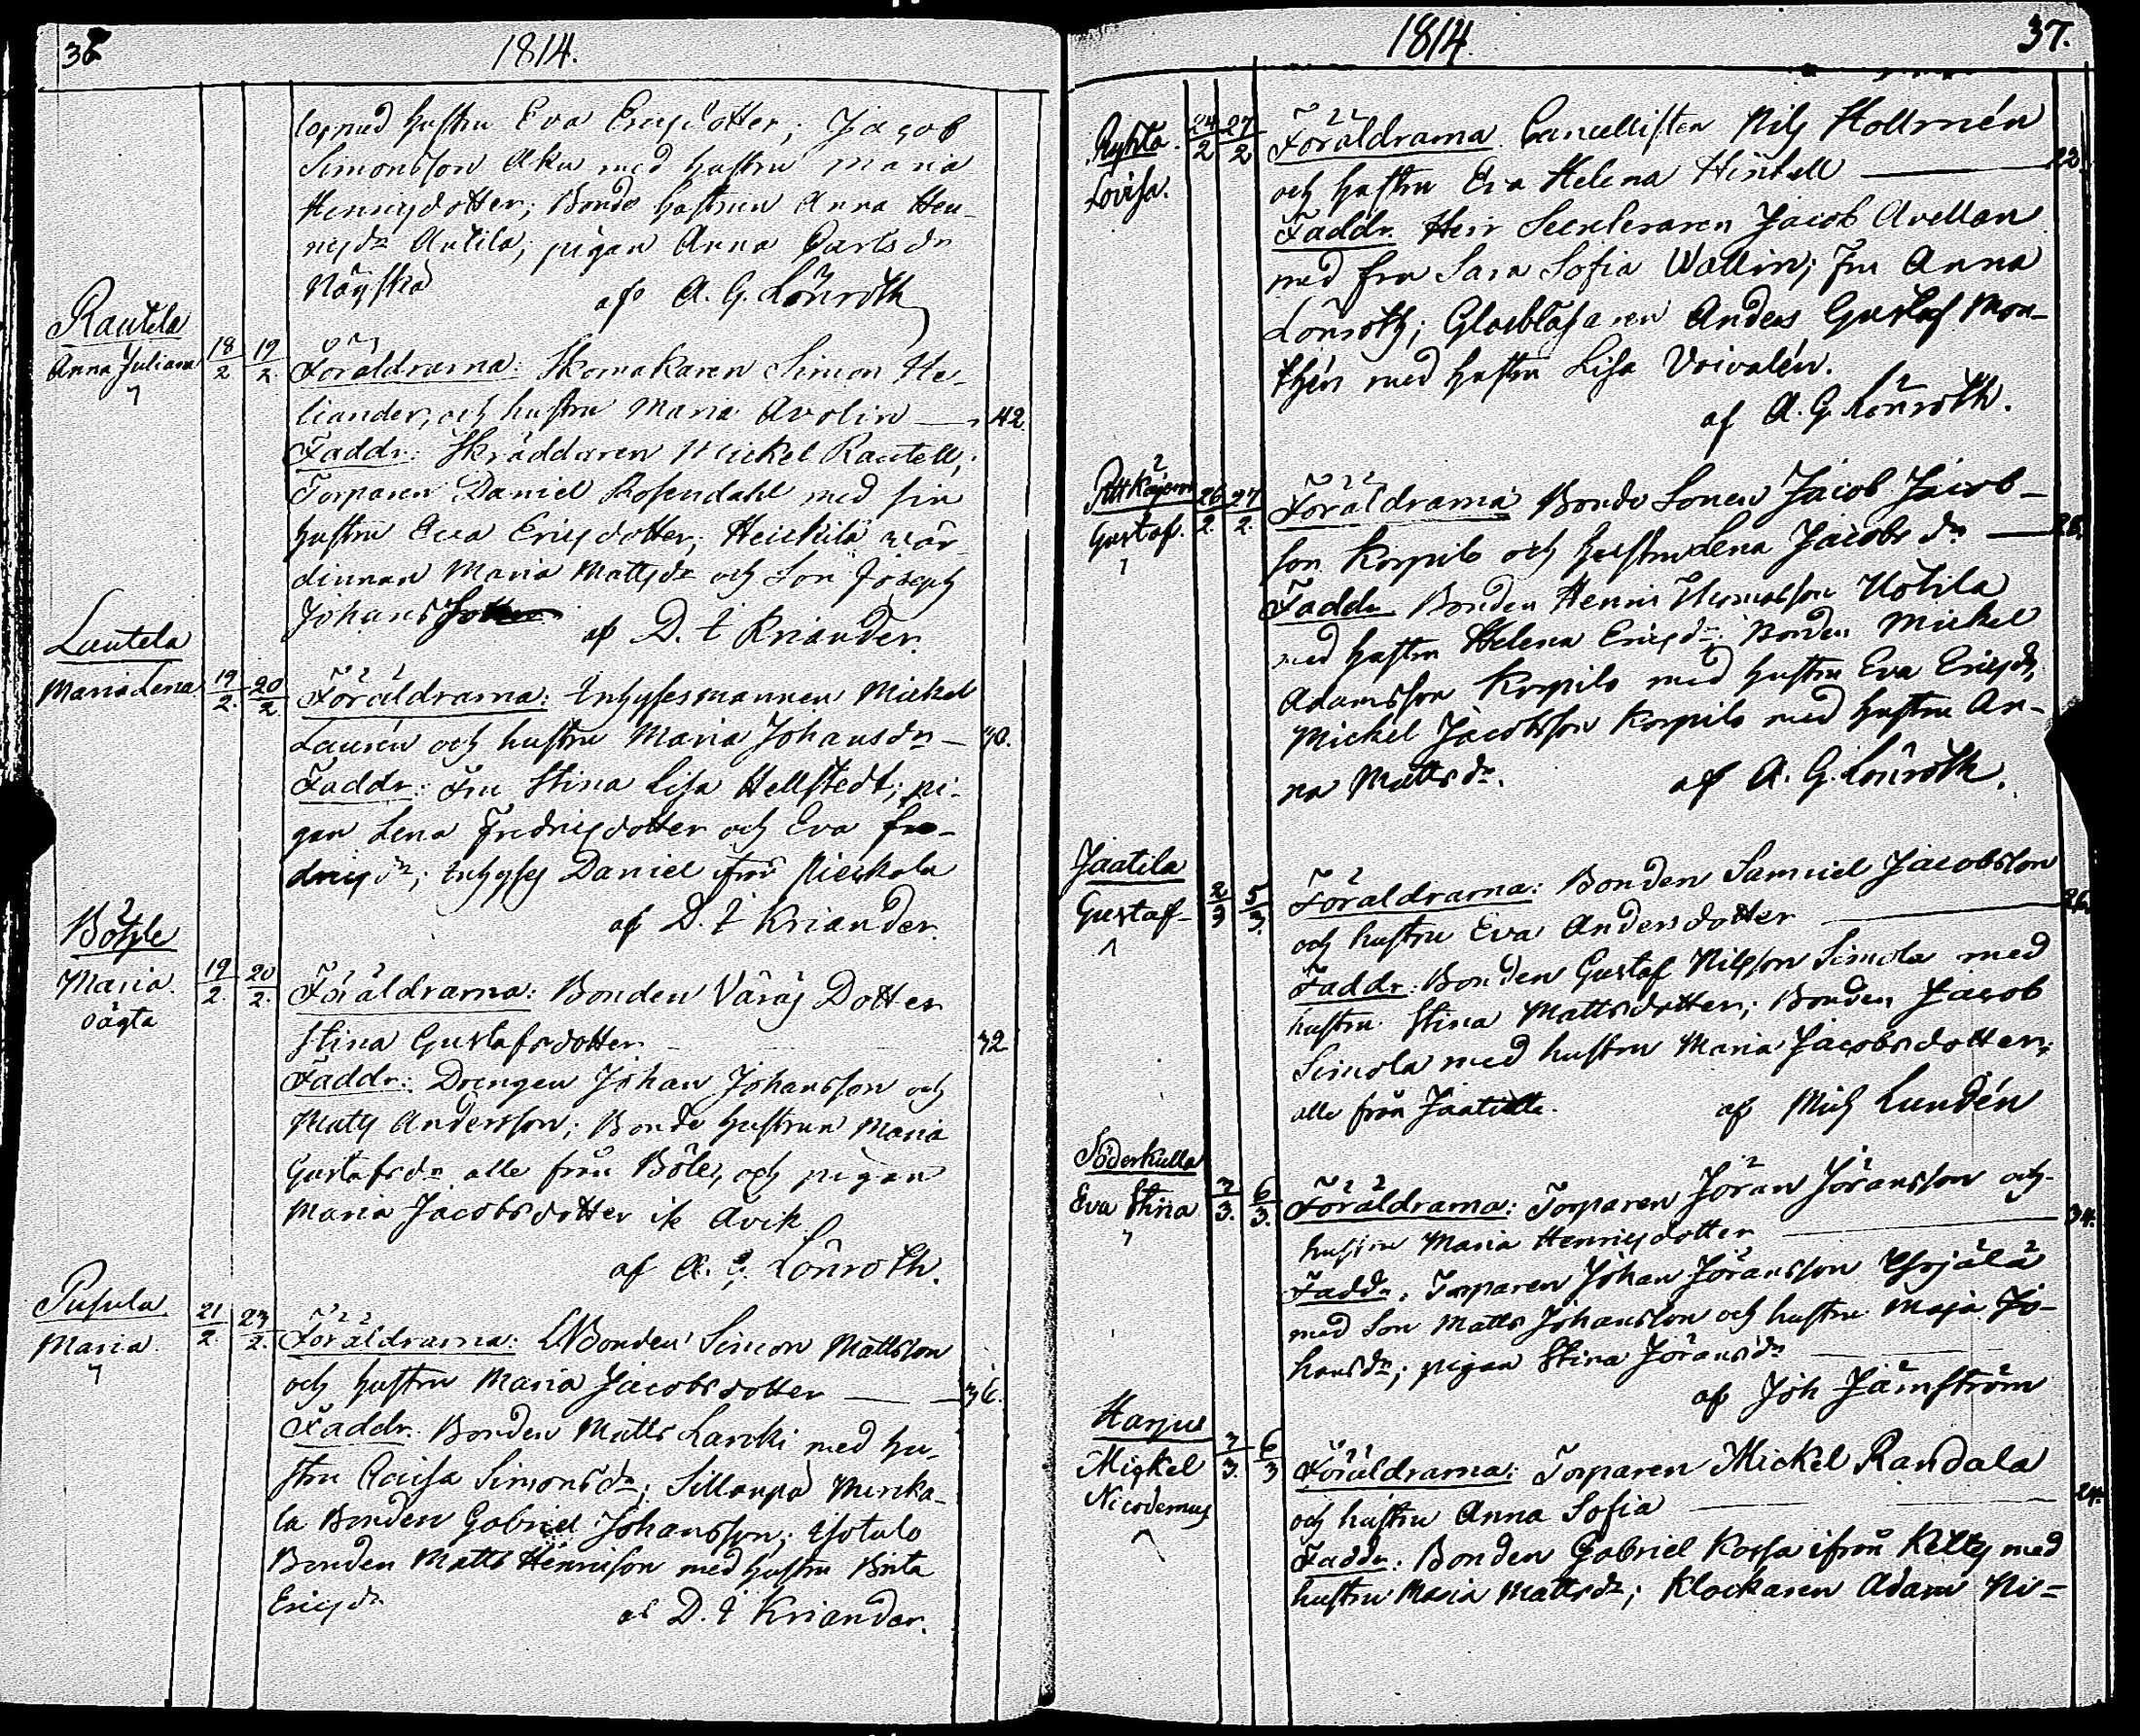 36
1814.
med hustru Eva Ericsdotter; Jacob
Simonsson Aku med hustru Maria
Henricsdotter; Bonde hustrun Anna Hen-
ricsdr Antila; pigan Anna Carlsdr
af A. G. Lönroth
Rautela
Anna Juliana
18/2 19/2
Föräldrarna: Skomakaren Simon He-
liander, och hustru Maria Avolin — 42.
Faddr: Skräddaren Mickel Rautell;
Torparen Daniel Rosendahl med sin
hustru Eva Ericsdotter; Heickilä vär-
dinnan Maria Mattsdr och Son Joseph
Johans
af D. t Kriander.
Lautela
Maria Lena
19/2. 20/2
Föräldrarna: Inhysesmannen Mickel
Laurén och hustru Maria Johansdr — 30.
Faddr: Fru Stina Lisa Hellstedt; pi-
gan Lena Fredricsdotter och Eva Fre-
dricsdr; Inhyses Daniel ifrån
af D. t Kriander.
Böhle
Maria.
oägta
19/2. 20/2.
Föräldrarna: Bonden Dotter
Stina Gustafsdotter 32
Faddr: Drengen Johan Johansson och
Matts Andersson; Bonde hustrun Maria
Gustafsdr alle från Böle, och pigan
Maria Jacobsdotter ifr Avik.
af A. G. Lönroth.
Pusula
Maria.
21/2. 23/2.
Föräldrarna: Bonden Simon Mattsson
och hustru Maria Jacobsdotter — 36.
Faddr. Bonden Matts med hu-
stru Simonsdr;
la Bonden Gabriel Johansson; Isotalo
Bonden Matts Henricson med hustru Brita
Ericsdr
af D. t Kriander.
1814
37.
Lovisa.
24/2 27/2
Föräldrarna. Cancellisten Nils Hollmén
och hustru Eva Helena — 22.
Faddr. Herr Secreteraren Jacob Avellan
med fru Sara Sofia Wallin; Fru Anna
Lönroth; Glasblåsaren Anders Gustaf Mon-
thén med hustru Lisa
af A. G. Lönroth.
Gustaf.
26/2. 27/2.
Föräldrarna Bonde Sonen Jacob Jacob-
son Korpilo och hustru Lena Jacobsdr — 26.
Faddr Bonden Henric Thomasson Uotila
med hustru Helena Ericsdr; Bonden Mickel
Adamsson Korpilo med hustru Eva Ericsdr,
Mickel Jacobsson Korpilo med hustru An-
na Mattsdr.
af A. G. Lönroth.
Jaatila
Gustaf
2/3 5/3.
Föräldrarna: Bonden Samuel Jacobsson
och hustru Eva Andersdotter — 26.
Faddr: Bonden Gustaf Nilsson Simola med
hustru Stina Mattsdotter; Bonden Jacob
Simola med hustru Maria Jacobsdotter;
alle från Jaatila.
af Mich Lundén
Söderkulla
Eva Stina
3/3. 6/3.
Föräldrarna: Torparen Jöran Jöransson och
hustru Maria Henricsdotter — 34.
Faddr. Torparen Johan Jöransson Yrjälä
med Son Matts Johansson och hustru Maja Jo-
hansdr; pigan Stina Jöransdr
af Joh Järnström
Harjus
Mickel
Nicodemus
3/3. 6/3
Föräldrarna: Torparen Mickel Randala
och hustru Anna Sofia — 24.
Faddr: Bonden Gabriel Kossa ifrån med
hustru Maria Mattsdr; Klockaren Adam Ni=